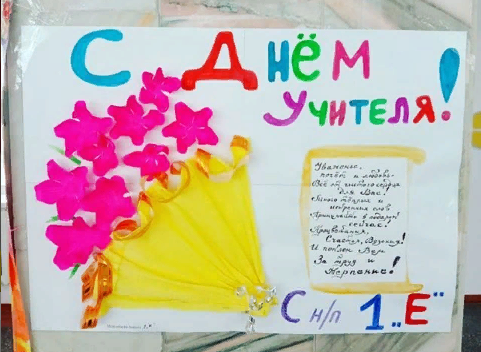 С Днём
Учителя!
Уваженье,
почёт и любовь -
Всё от чистого сердца
для Вас!
Много тёплых и
искренних слов
Принимайте в подарок
сейчас!
Процветания,
Счастья, Везения!
И поклон Вам
За труд и
Терпение!
С н/п 1 „Е"